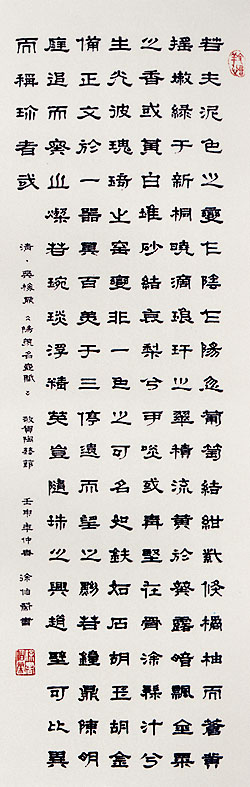 若夫泥色之變乍陰乍陽忽葡萄結紺紫倏橘柚而蒼黃
搖嫩綠于新桐曉滴琅玕之翠積流黃於葵露暗飄金粟
之香或黃白堆砂結哀梨兮可啖或青堅在骨涂髹汁兮
生光彼瑰琦之窯變非一色之可名如鐵如石胡玉胡金
備五文於一器具百美于三停遠而望之黝若鐘鼎陳明
庭迫而察之燦若琬琰浮精英豈隨珠之與趙璧可比異
而稱珍者哉
清·吳梅鼎《陽羨名壺賦》 壬申年仲春 書